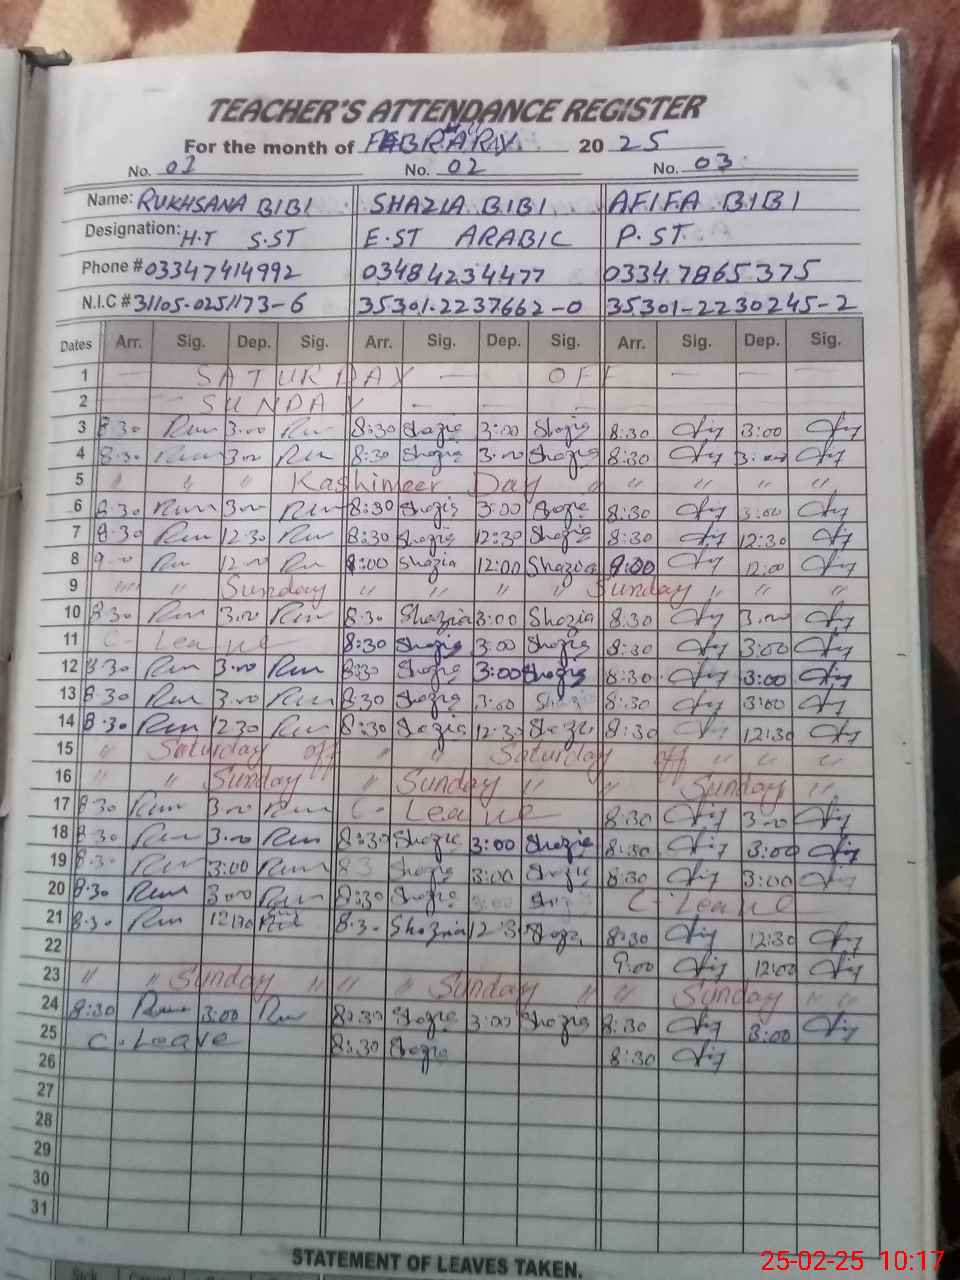 TEACHER'S ATTENDANCE REGISTER
For the month of FEBRARAY 2025
No. 01 No. 02 No. 03
Name: RUKHSANA BIBI SHAZIA BIBI AFIFA BIBI
Designation: H.T S.ST E.ST ARABIC P.ST.
Phone # 03347414992 03484234477 03347865375
N.I.C # 31105-0251173-6 35301-2237662-0 35301-2230245-2
Dates Arr. Sig. Dep. Sig. Arr. Sig. Dep. Sig. Arr. Sig. Dep. Sig.
1 — SATURDAY — OFF — — —
2 SUNDAY — — — — —
3 8:30 3:00 8:30 Shazia 3:00 Shazia 8:30 3:00
4 8:30 3:00 8:30 Shazia 3:00 Shazia 8:30 3:00
5 " " " Kashimeer Day " " " " "
6 8:30 3:00 8:30 Shazia 3:00 Shazia 8:30 3:00
7 8:30 12:30 8:30 Shazia 12:30 Shazia 8:30 12:30
8 9:00 12:00 Shazia 12:00 Shazia 9:00 12:00
9 " " Sunday " " " " Sunday " " "
10 8:30 3:00 8:30 Shazia 3:00 Shazia 8:30 3:00
11 C- Leave 8:30 Shazia 3:00 Shazia 8:30 3:00
12 8:30 3:00 8:30 Shazia 3:00 Shazia 8:30 3:00
13 8:30 3:00 8:30 Shazia 3:00 Shazia 8:30 3:00
14 8:30 12:30 8:30 Shazia 12:30 Shazia 8:30 12:30
15 " Saturday off " " Saturday off " " "
16 " " Sunday " Sunday " " Sunday "
17 8:30 3:00 C- Leave 8:30 3:00
18 8:30 3:00 8:30 Shazia 3:00 Shazia 8:30 3:00
19 8:30 3:00 83 Shazia 3:00 Shazia 8:30 3:00
20 8:30 3:00 8:30 Shazia 3:00 C- Leave
21 8:30 12:30 8:30 Shazia 12:30 Shazia 8:30 12:30
22 9:00 12:00
23 " " Sunday " " " Sunday " " Sunday " "
24 8:30 3:00 8:30 Shazia 3:00 Shazia 8:30 3:00
25 C. Leave 8:30 Shazia 8:30
26
27
28
29
30
31
STATEMENT OF LEAVES TAKEN.
25-02-25 10:17